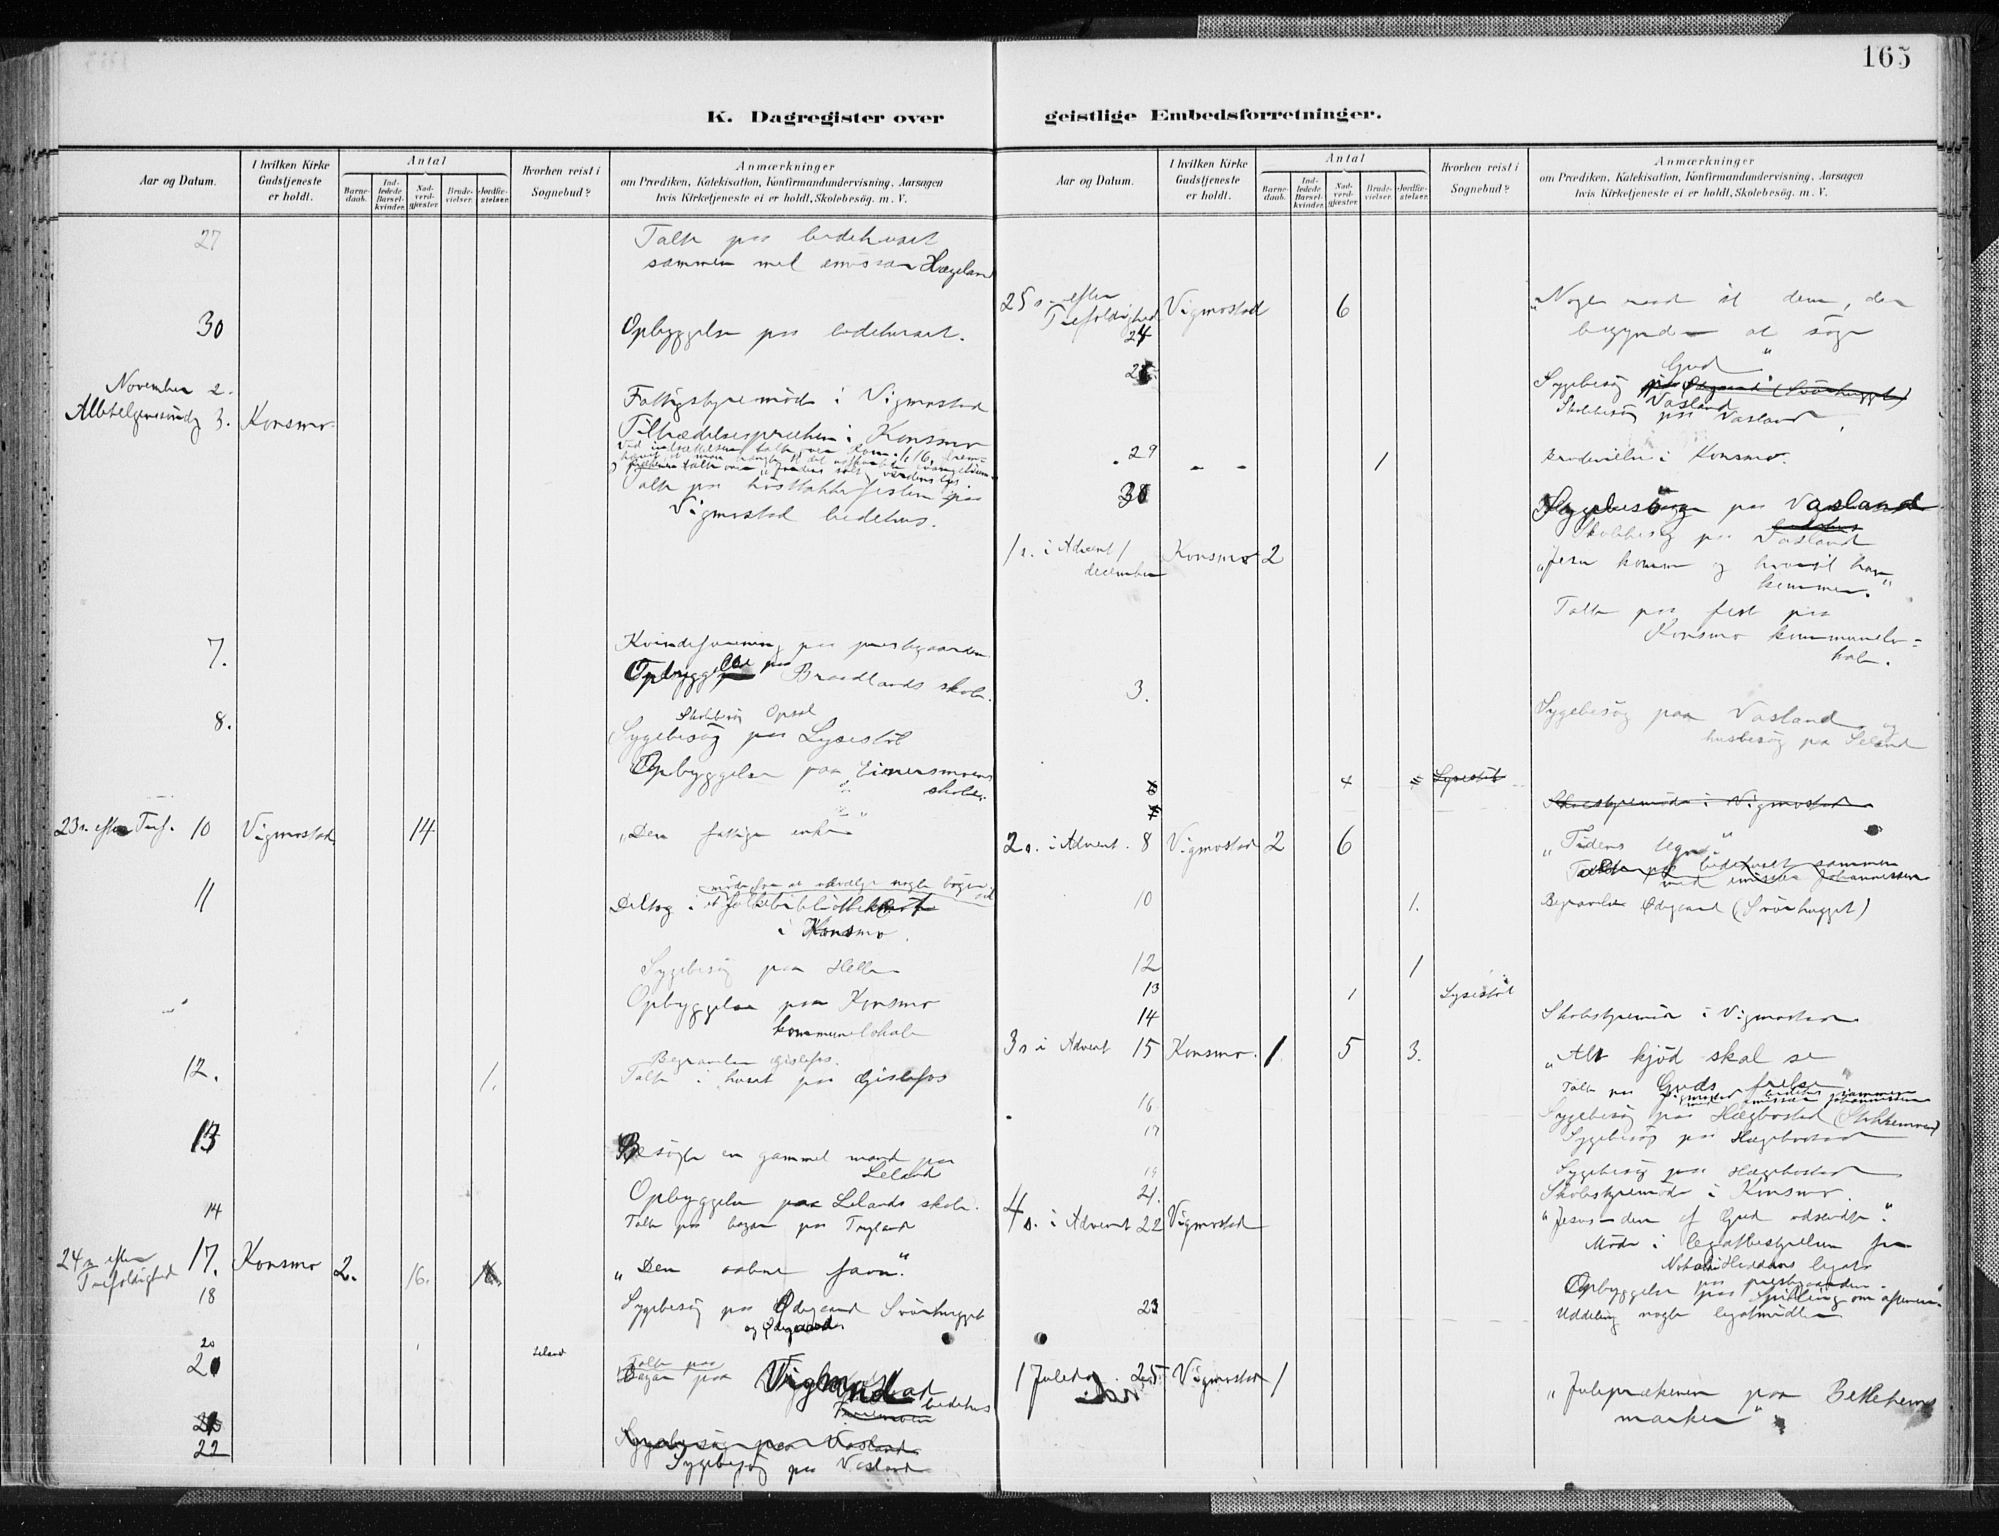 165
K. Dagregister over geistlige Embedsforretninger.
Aar og Datum.
I hvilken Kirke Gudstjeneste er holdt.
Antal
Barnedaab.
Indledede Barselkvinder.
Nadverdgjester.
Brudevielser.
Jordfæstelser.
Hvorhen reist i Sognebud?
Anmærkninger
om Prædiken, Katekisation, Konfirmandundervisning, Aarsagen
hvis Kirketjeneste ei er holdt, Skolebesög. m. V.
27 Talte paa bedehuset
sammen med emissær Hægeland
30 Opbyggelse paa bedehuset.
November 2. Fattigstyremöde i Vigmostad
Allehelgenssöndag 3. Konsmo Tiltrædelsespræken i Konsmo
Talte paa høsttakkefesten paa
Vigmostad bedehus.
7. Kvindeforening paa prestegaarden.
Opbyggelse paa Brædlands skole.
8. Skolebesög Opsal
Sygebesög paa Lysestöl
Opbyggelse paa Einersmoens
skole.
23 s. efter Tref. 10 Vigmostad 14 "Den fattige enke"
11 Deltog i et folkebibliothek
i Konsmo.
Sygebesög paa Helle
Opbyggelse paa Konsmo
kommunelokale
12. 1. Begravelse Gislefos.
Talte i huset paa Gislefos
13 Besögte en gammel mand paa
Leland
Opbyggelse paa Lelands skole.
14 Talte paa bazar paa Trygland
24 s. efter Trefoldighed 17. Konsmo 2. 16. "Den aabne favn."
18 Sygebesög paa Ødegaard Svörhugget
og Ødegaard
20 Leland
21 Talte paa
Bazar paa Vigmostad
bedehus
22 Sygebesög paa Vasland
Sygebesög paa Vasland
Aar og Datum.
I hvilken Kirke Gudstjeneste er holdt.
Antal
Barnedaab.
Indledede Barselkvinder.
Nadverdgjester.
Brudevielser.
Jordfæstelser.
Hvorhen reist i Sognebud?
Anmærkninger
om Prædiken, Katekisation, Konfirmandundervisning, Aarsagen
hvis Kirketjeneste ei er holdt, Skolebesög. m. V.
25 s. efter Trefoldighed 24 Vigmostad 6 "Nogle raad til dem, der
begynder at söge
Gud"
Sygebesög Vasland
Skolebesög paa Vasland.
29 " " 1 brudevielse i Konsmo.
30 Sygebesög paa Vasland
Skolebesög paa Vasland
1 s. i Advent 1 december Konsmo 2 "Jesus kommer og hvortil han
kommer."
Talte paa fest paa
Konsmo kommunelo-
kale.
3. Sygebesög paa Vasland og
husbesög paa Leland
Lysestöl
Skolestyremöde i Vigmostad
2 s. i Advent. 8 Vigmostad 2 6 "Tidens tegn"
Talte paa bedehuset sammen
med emissær Johannessen
10 1. Begravelse Ødegaard (Svörhugget)
12 1
13 1 Lysestöl
14 Skolestyremöde i Vigmostad
3 s. i Advent 15 Konsmo. 1 5 3. "Alt kjöd skal se
Guds frelse"
Talte paa Vigmostad bedehus sammen
med emissær Johannessen
16 Sygebesög paa Hægbostad (Stokkemoen)
17 Sygebesög paa Hægebostad
19 Sygebesög paa Hægebostad
21. Skolestyremöde i Konsmo.
4 s. i Advent 22 Vigmostad "Jesus - den af Gud udsendte."
Möde i legatbestyrelsen for
legat
paa prestegaarden.
Opbyggelse paa Spilling om aftenen.
23 Uddeling nogle legatmidler
1 Juledag. 25 Vigmostad 1 "Juleprækenen paa Betlehems
marker"